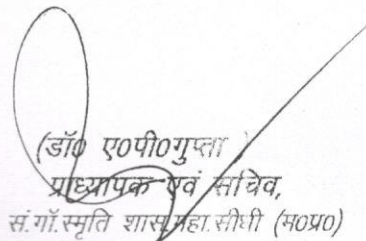 (डॉ० ए०पी०गुप्ता )
प्राध्यापक एवं सचिव,
सं.गॉ.स्मृति शास.महा.सीधी (म०प्र०)